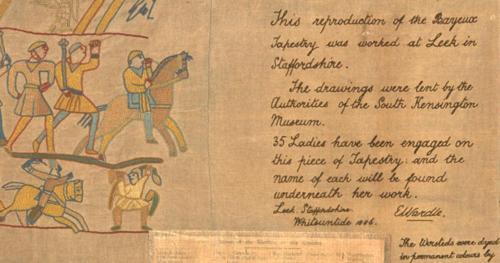 This reproduction of the Bayeux
Tapestry was worked at Leek in
Staffordshire.
The drawings were lent by the
Authorities of the South Kensington
Museum.
35 Ladies have been engaged on
this piece of Tapestry: and the
name of each will be found
underneath her work.
Leek. Staffordshire.
Whitsuntide 1886.
E Wardle.
The Worsteds were dyed
in permanent colours by